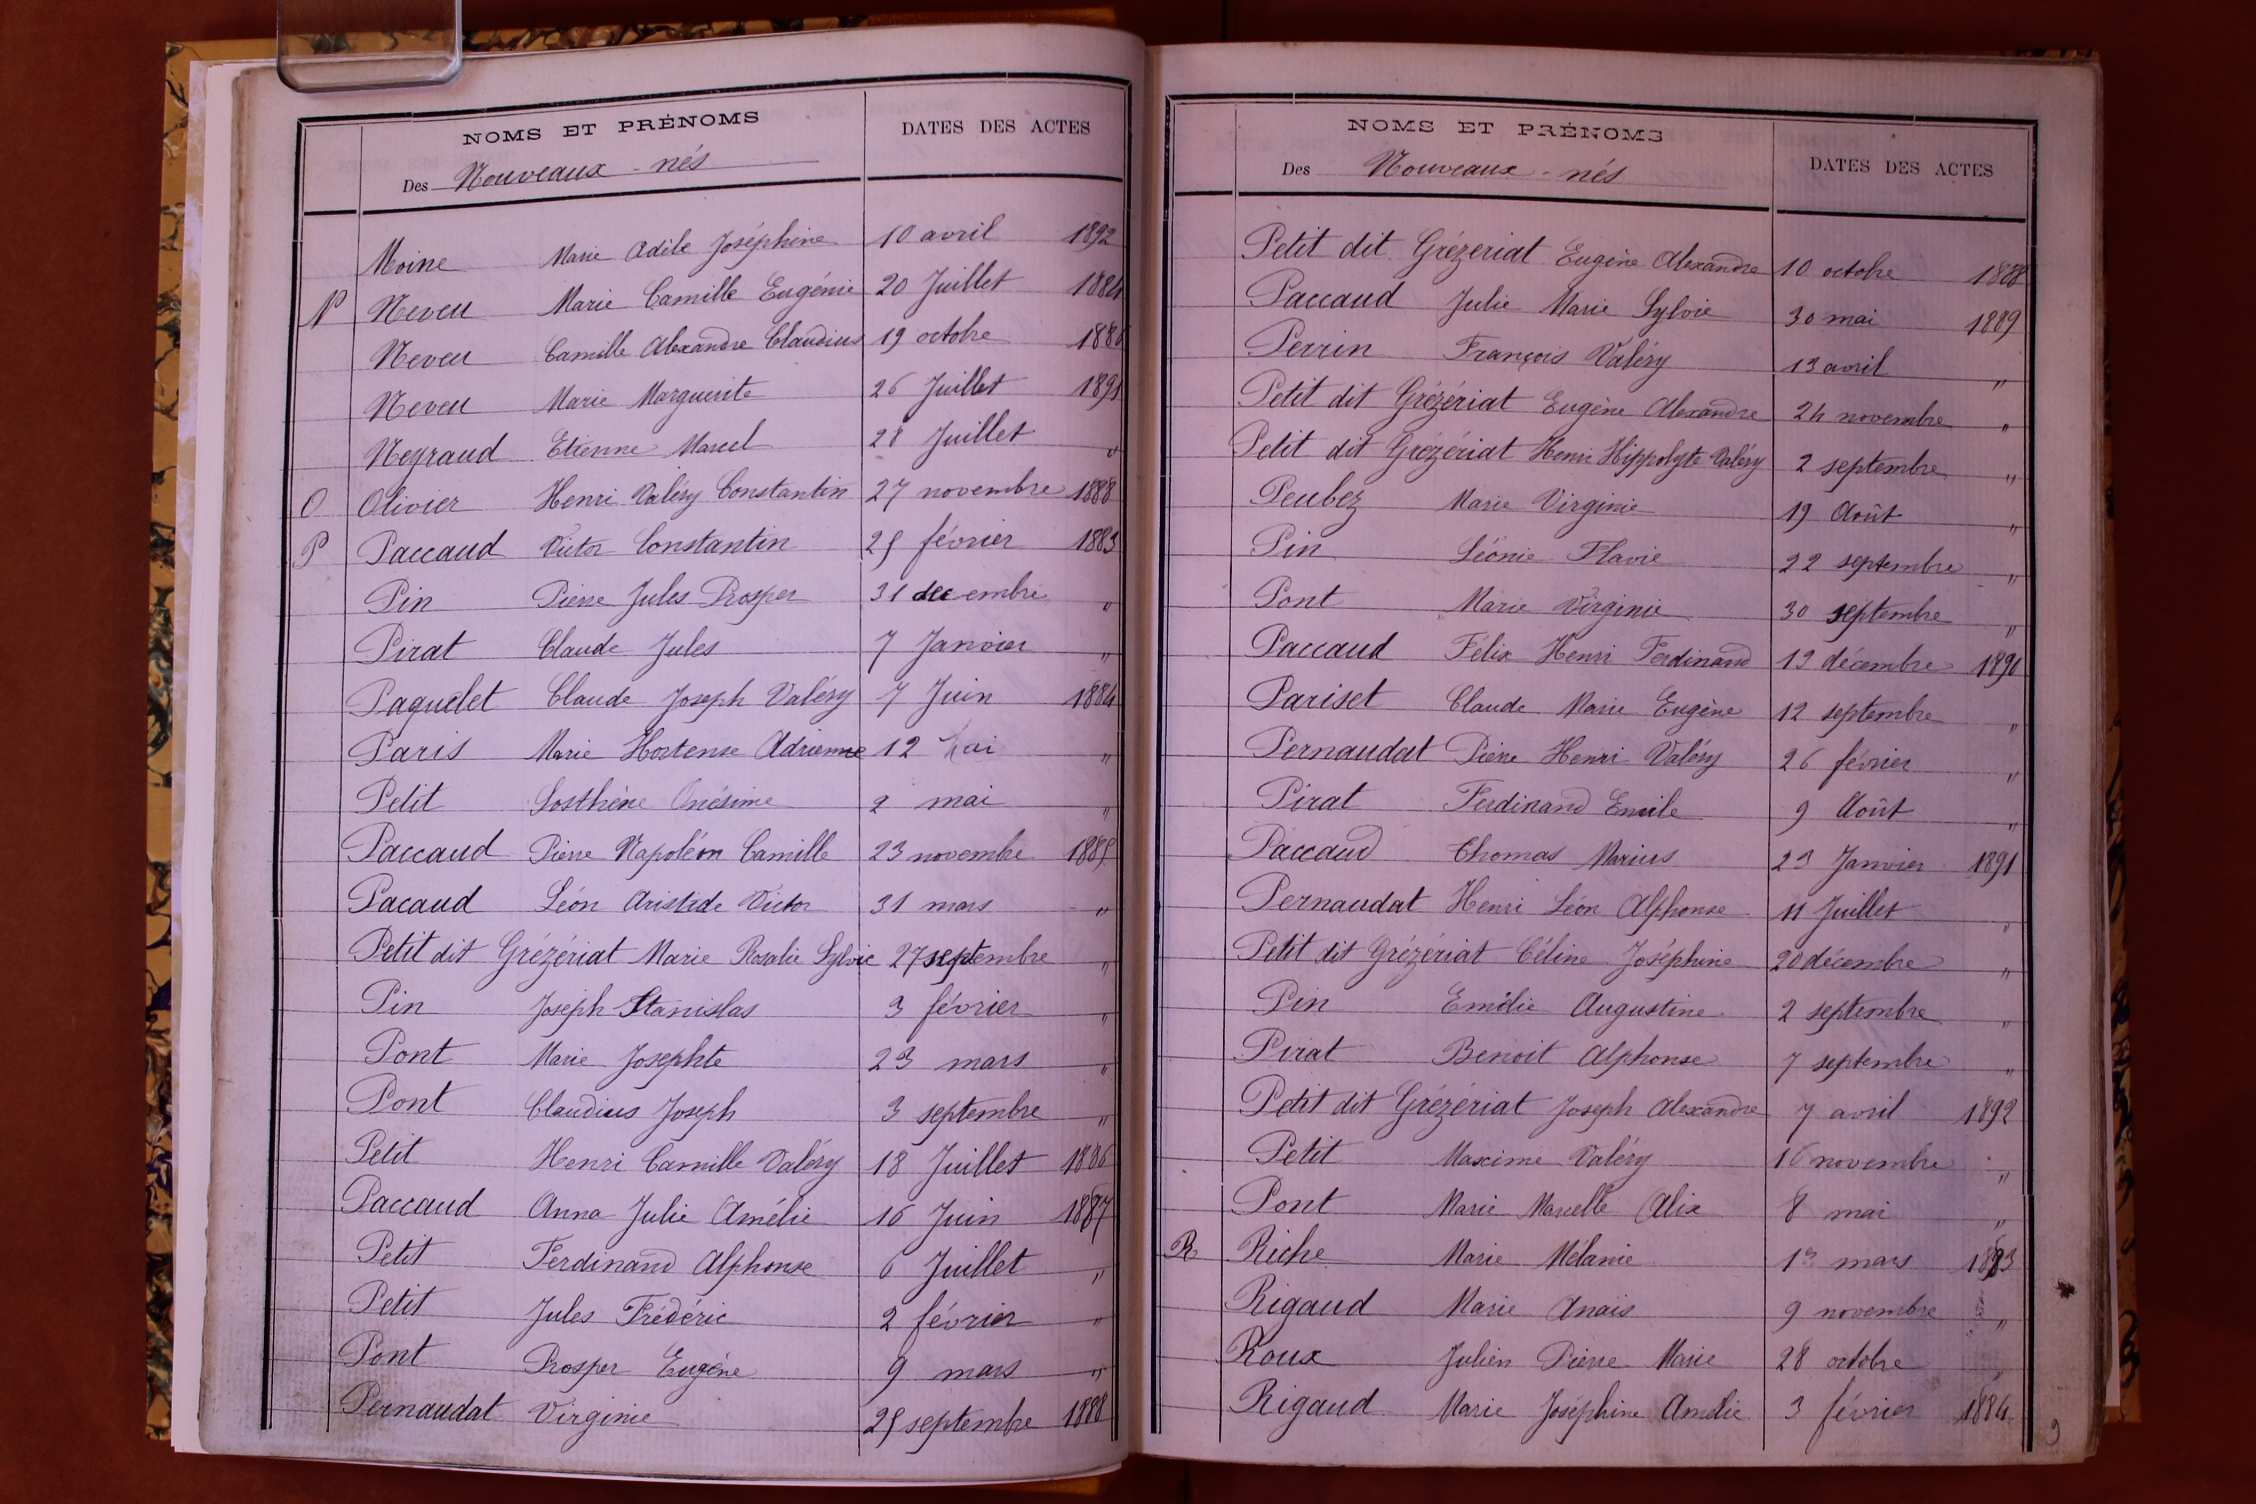 NOMS ET PRÉNOMS
DATES DES ACTES
Des Nouveaux-nés
Moine Marie Adèle Joséphine 10 avril 1892
N Neveu Marie Camille Eugénie 20 Juillet 1884
Neveu Camille Alexandre Claudius 19 octobre 1886
Neveu Marie Marguerite 26 Juillet 1891
Neyraud Etienne Marcel 28 Juillet "
O Olivier Henri Valéry Constantin 27 novembre 1888
P Paccaud Victor Constantin 25 février 1883
Pin Pierre Jules Prosper 31 decembre "
Pirat Claude Jules 7 Janvier "
Paquelet Claude Joseph Valéry 7 Juin 1884
Paris Marie Hortense Adrienne 12 Mai "
Petit Sosthène Onésime 2 mai "
Paccaud Pierre Napoléon Camille 23 novembre 1885
Pacaud Léon Aristide Victor 31 mars "
Petit dit Grézériat Marie Rosalie Sylvie 27 septembre "
Pin Joseph Stanislas 3 février "
Pont Marie Josephte 23 mars "
Pont Claudius Joseph 3 septembre "
Petit Henri Camille Valéry 18 Juillet 1886
Paccaud Anna Julie Amélie 16 Juin 1887
Petit Ferdinand Alphonse 6 Juillet "
Petit Jules Frédéric 2 février "
Pont Prosper Eugène 9 mars "
Pernaudat Virginie 25 septembre 1888
NOMS ET PRÉNOMS
DATES DES ACTES
Des Nouveaux-nés
Petit dit Grézeriat Eugène Alexandre 10 octobre 1888
Paccaud Julie Marie Sylvie 30 mai 1889
Perrin François Valéry 13 avril "
Petit dit Grézériat Eugène Alexandre 24 novembre "
Petit dit Grézériat Henri Hippolyte Valéry 2 septembre "
Peubez Marie Virginie 19 Août "
Pin Léonie Flavie 22 septembre "
Pont Marie Virginie 30 septembre "
Paccaud Félix Henri Ferdinand 19 décembre 1890
Pariset Claude Marie Eugène 12 septembre "
Pernaudat Pierre Henri Valéry 26 février "
Pirat Ferdinand Emile 9 Août "
Paccaud Thomas Marius 23 Janvier 1891
Pernaudat Henri Léon Alphonse 11 Juillet "
Petit dit Grézériat Céline Joséphine 20 décembre "
Pin Emélie Augustine 2 septembre "
Pirat Benoit Alphonse 7 septembre "
Petit dit Grézériat Joseph Alexandre 7 avril 1892
Petit Maxime Valéry 16 novembre "
Pont Marie Marcelle Alix 8 mai "
R Riche Marie Mélanie 13 mars 1883
Rigaud Marie Anaïs 9 novembre "
Roux Julien Pierre Marie 28 octobre "
Rigaud Marie Joséphine Amélie 3 février 1884
9